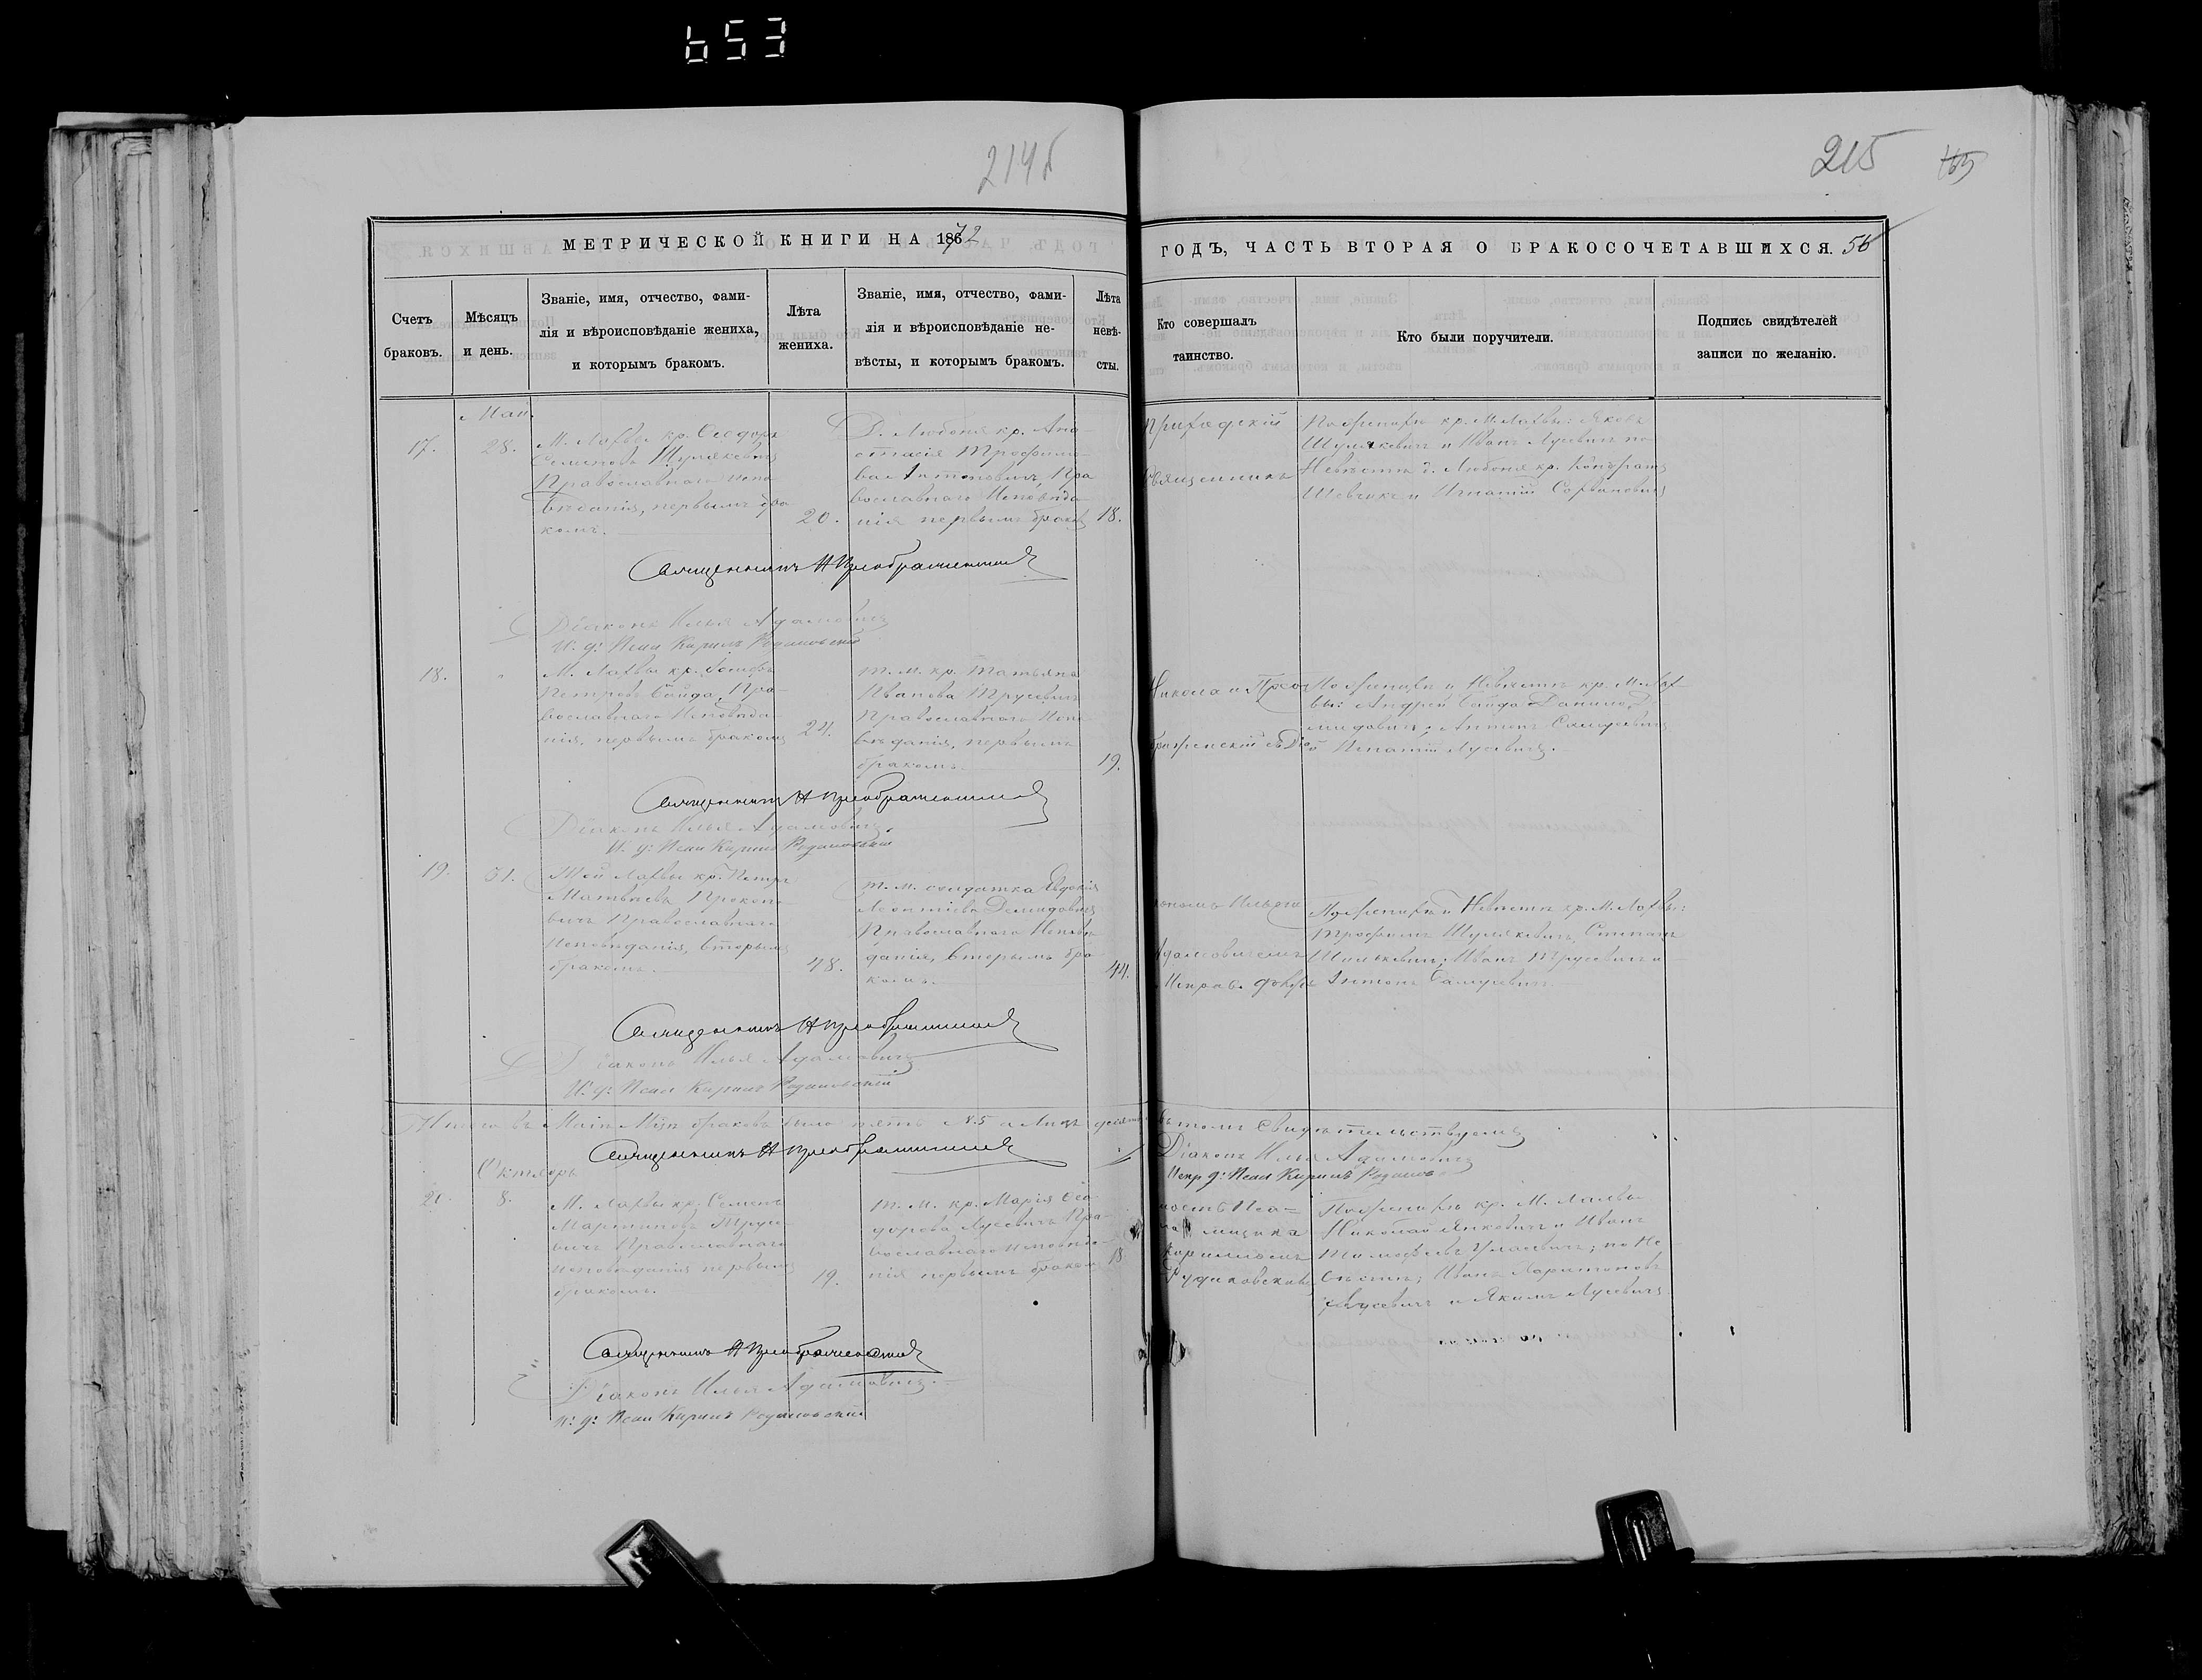 653
214б
215
165
МЕТРИЧЕСКОЙ КНИГИ НА 1872
ГОДЪ, ЧАСТЬ ВТОРАЯ О БРАКОСОЧЕТАВШИХСЯ. 56
Счетъ
браковъ.
Мѣсяцъ
и день.
Званіе, имя, отчество, фами-
лія и вѣроисповѣданіе жениха,
и которымъ бракомъ.
Лѣта
жениха.
Званіе, имя, отчество, фами-
лія и вѣроисповѣданіе не-
вѣсты, и которымъ бракомъ.
Лѣта
невѣ-
сты.
Кто совершалъ
таинство.
Кто были поручители.
Подпись свидѣтелей
записи по желанію.
Май.
17.
28.
М. Лахвы кр. Ѳеодоръ
Семеновъ Шулякевичъ
Православнаго Испо-
вѣданія, первымъ бра
комъ.
20.
Д. Любоня кр. Ана-
стасія Трофимо-
ва Антоновичъ, Пра
вославнаго Исповѣда-
нія первымъ бракомъ
18.
Приходскій
Священникъ
По Женихѣ кр. М. Лахвы: Яковъ
Шулякевичъ и Иванъ Лусевичъ по
Невѣстѣ д. Любоня кр. Кондратъ
Шевчикъ и Игнатій
Священникъ Н Преображенскій
Діаконъ Илья Адамовичъ
И. д: Псал Кирилъ
18.
М. Лахвы кр. Іосифъ
Петровъ Байда, Пра-
вославнаго Исповѣда-
нія, первымъ бракомъ
24.
т. м. кр. Татьяна
Иванова Трусевичъ
Православнаго Испо-
вѣданія, первымъ
бракомъ.
19.
Николай Прео-
браженскій съ Діа
По Женихѣ и Невѣстѣ кр. М. Лах-
вы: Андрей Байда Данило Де-
мидовичъ, Антонъ
и Игнатій Лусевичъ.
Священникъ Н Преображенскій
Діаконъ Илья Адамовичъ
И. д: Псал Кирилъ
19.
31.
Той Лахвы кр. Петръ
Матвѣевъ Прокопо-
вичъ Православнаго
Исповѣданія, вторымъ
бракомъ.
48.
т. м. солдатка Евдокія
Леонтіева Демидовичъ
Православнаго Исповѣ-
данія, вторымъ бра-
комъ.
44.
кономъ Ильею
Адамовичемъ
Исправ. долж
По Женихѣ и Невѣстѣ кр. М. Лахвы:
Трофимъ Шулякевичъ, Степанъ
Шилкевичъ, Иванъ Трусевичъ и
Антонъ
Священникъ Н Преображенскій
Діаконъ Илья Адамовичъ
И. д: Псал Кирилъ
Итого въ Маѣ Мцѣ браковъ было пять N. 5 а Лицъ десять
въ томъ Свидѣтельствуемъ
Священникъ Н Преображенскій
Діаконъ Илья Адамовичъ
Испр д: Псал Кирилъ
Октябрь
8.
М. Лахвы кр. Семенъ
Мартиновъ Трусе-
вичъ Православнаго
исповѣданія первымъ
бракомъ.
19.
т. м. кр. Марія Ѳео-
дорова Лусевичъ Пра-
вославнаго исповѣда-
нія первымъ бракомъ
18
ность Пса-
ломщика
Кирилломъ
По Женихѣ кр. М. Лахвы
Николай Янкевичъ и Иванъ
Тимофеевъ; по Не-
вѣстѣ; Иванъ Харитоновъ
Лусевичъ и Якимъ Лусевичъ
Священникъ Н Преображенскій
Діаконъ Илья Адамовичъ
И. д: Псал Кирилъ